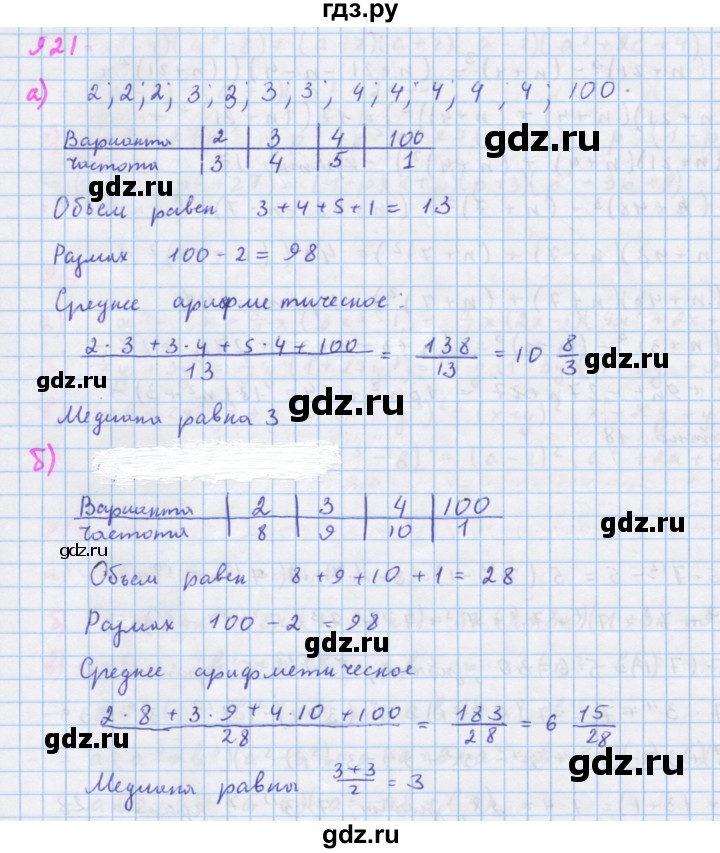 гдз.ру
921.
а) 2; 2; 2; 3; 3; 3; 3; 4; 4; 4; 4; 4; 100.
Варианта | 2 | 3 | 4 | 100
Частота | 3 | 4 | 5 | 1
gdz.ru
gdz.ru
Объем равен 3+4+5+1 = 13
Размах 100-2 = 98
gdz.ru
Среднее арифметическое:
2·3+3·4+5·4+100/13 = 138/13 = 10 8/3
gdz.ru
gdz.ru
gdz.ru
Медиана равна 3
б)
Варианта | 2 | 3 | 4 | 100
Частота | 8 | 9 | 10 | 1
gdz.ru
gdz.ru
Объем равен 8+9+10+1 = 28
Размах 100-2 = 98
gdz.ru
Среднее арифметическое
2·8+3·9+4·10+100/28 = 183/28 = 6 15/28
gdz.ru
Медиана равны 3+3/2 = 3
gdz.ru
gdz.ru